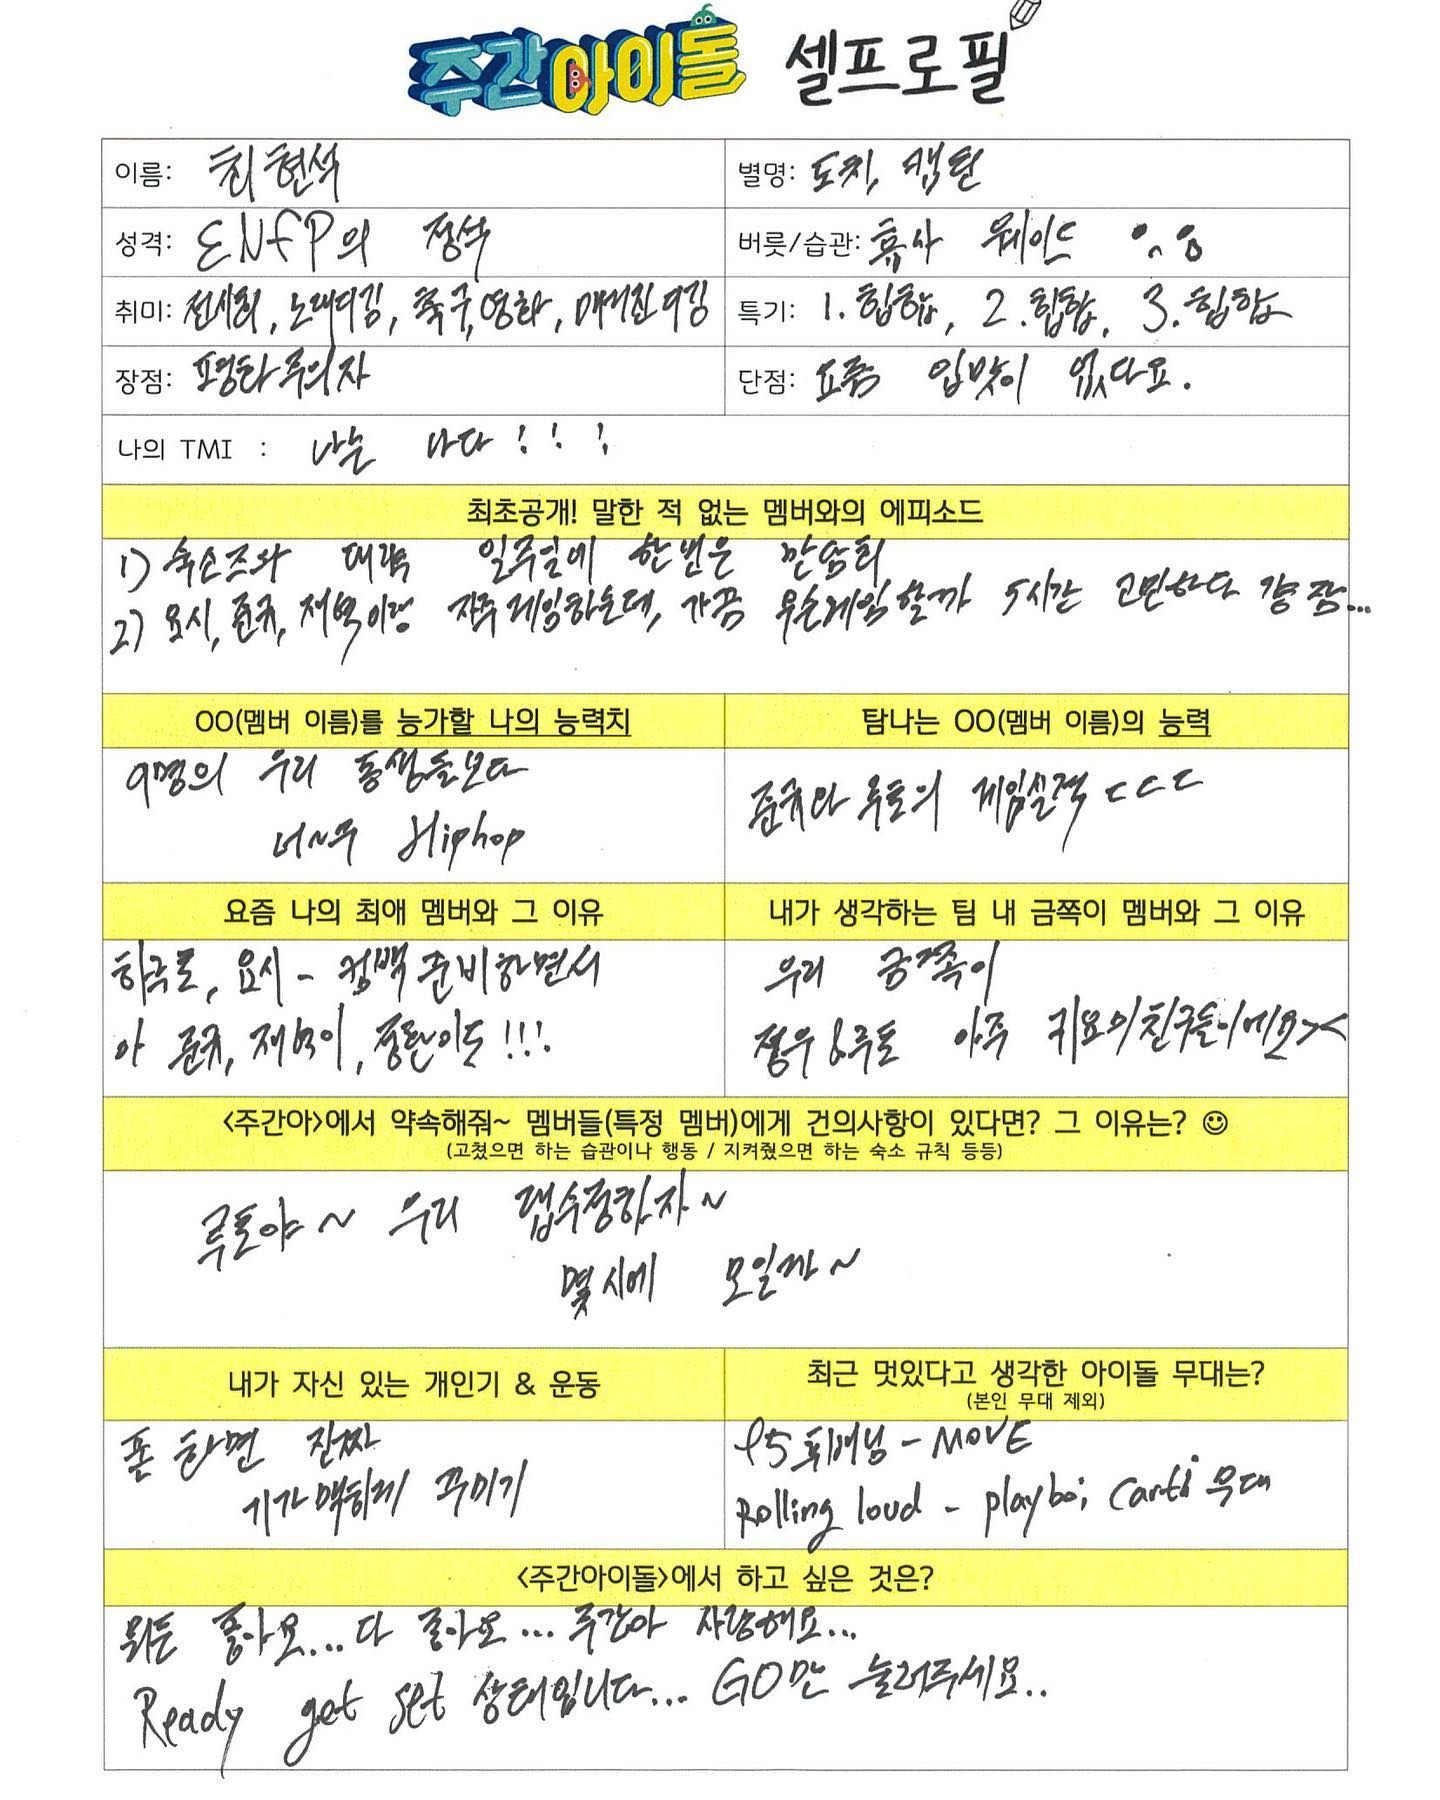 주간아이돌 셀프로필
이름: 최현석
별명: 도치, 캡틴
성격: ENFP의 정석
버릇/습관: 휴사 웨이드
취미: 전시회, 노래디깅, 축구, 영화, 매거진디깅
특기: 1. 힙합, 2. 힙합, 3. 힙합
장점: 평화주의자
단점: 요즘 입맛이 없다요.
나의 TMI : 나는 나다!!!
최초공개! 말한 적 없는 멤버와의 에피소드
1) 숙소즈와 대략 일주일에 한번은 만담회
2) 요시, 준규, 재혁이랑 자주 게임하는데, 가끔 무슨게임할까 5시간 고민하다 걍 잠...
OO(멤버 이름)를 능가할 나의 능력치
9명의 우리 동생들보다
너~무 Hiphop
탐나는 OO(멤버 이름)의 능력
준규와 루토의 게임실력 ㄷㄷㄷ
요즘 나의 최애 멤버와 그 이유
하루토, 요시 - 컴백 준비하면서
아 준규, 재혁이, 정환이도!!!
내가 생각하는 팀 내 금쪽이 멤버와 그 이유
우리 금쪽이
정우&루토 아주 귀요미친구들이에요><
<주간아>에서 약속해줘~ 멤버들(특정 멤버)에게 건의사항이 있다면? 그 이유는? ☺
(고쳤으면 하는 습관이나 행동 / 지켜줬으면 하는 숙소 규칙 등등)
루토야~ 우리 랩수정하자~
몇시에 모일까~
내가 자신 있는 개인기 & 운동
폰 하면 진짜
기가맥히게 꾸미기
최근 멋있다고 생각한 아이돌 무대는?
(본인 무대 제외)
T5 튜배님 - MOVE
Rolling loud - playboi carti 무대
<주간아이돌>에서 하고 싶은 것은?
뭐든 좋아요... 다 좋아요... 주간아 사랑해요...
Ready get set 상태입니다... GO만 눌러주세요..